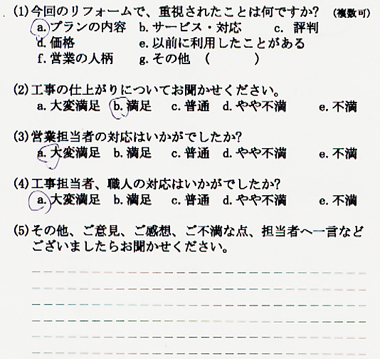 (1)今回のリフォームで、重視されたことは何ですか？(複数可)
a.プランの内容 b.サービス・対応 c. 評判
d.価格 e.以前に利用したことがある
f.営業の人柄 g.その他 (   )
(2)工事の仕上がりについてお聞かせください。
a.大変満足 b.満足 c.普通 d.やや不満 e.不満
(3)営業担当者の対応はいかがでしたか？
a.大変満足 b.満足 c.普通 d.やや不満 e.不満
(4)工事担当者、職人の対応はいかがでしたか？
a.大変満足 b.満足 c.普通 d.やや不満 e.不満
(5)その他、ご意見、ご感想、ご不満な点、担当者へ一言など
ございましたらお聞かせください。